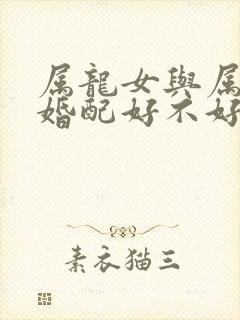 属龍女與属
婚配好不好
素衣猫三